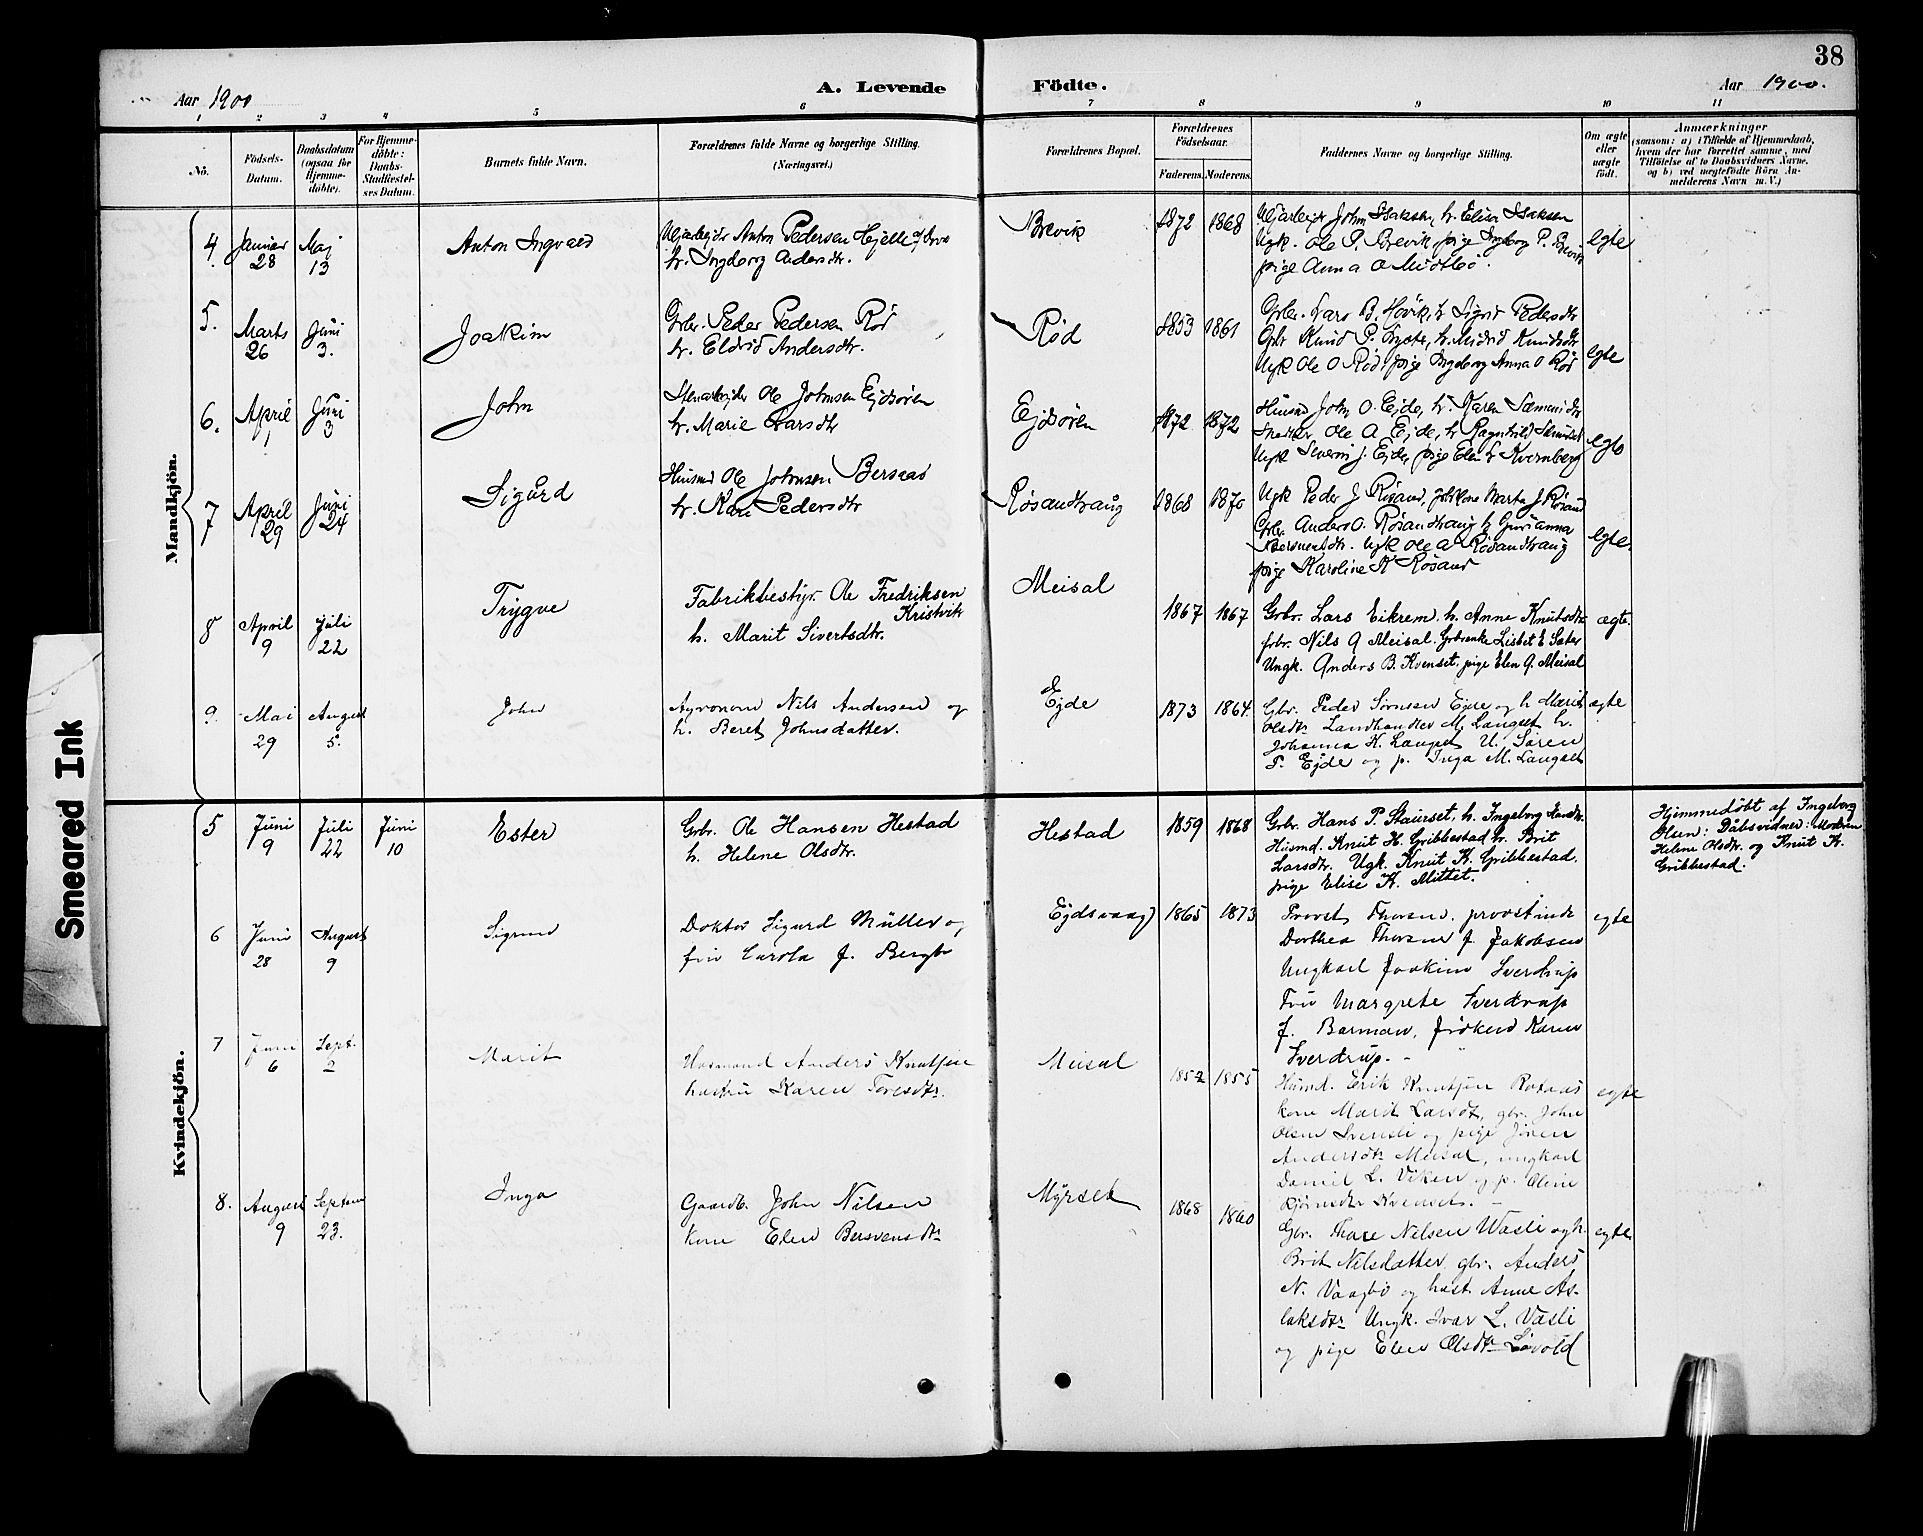 38
Aar 1900
A. Levende
Födte.
Aar 1900.
1 2 3 4 5 6 7 8 9 10 11
No.
Födsels-
Datum.
Daabsdatum
(ogsaa for
Hjemme-
döbte).
For Hjemme-
döbte:
Daabs-
Stadfæstel-
ses Datum.
Barnets fulde Navn.
Forældrenes fulde Navne og borgerlige Stilling.
(Næringsvei.)
Forældrenes Bopæl.
Forældrenes
Födselsaar.
Faderens. Moderens.
Faddernes Navne og borgerlige Stilling.
Om ægte
eller
uægte
født.
Anmærkninger
(saasom: a) i Tilfælde af Hjemmedaab,
hvem der har forrettet samme, med
Tilföielse af to Daabsvidners Navne,
og b) ved uægtefödte Börn An-
melderens Navn m. V.)
Mandkjön.
4.
Januar
28
Maj
13
Anton Ingvald
Anton Pedersen Hjelle
h. Ingeborg Andersdtr.
Brevik
1872 1868
John Isaksen, h. Elisa Isaksen
Ugk. Ole P. Brevik, pige Ingeborg P. Brevik
pige Anna O Midtbö.
egte
5.
Marts
26
Juni
3.
Joakim
Gbr. Peder Pedersen Rød
h. Eldrid Andersdtr.
Rød
1853 1861
Gbr. Lars B. Høvik, h Sigrid Pedersdtr
Gbr Knud P. h. Midrid Knudsdtr
Ugk Ole O Rød, pige Ingeborg Anna O Rød
egte
6.
April
1
Juni
3
John
Stenarbejder Ole Johnsen Ejdsøren
h. Marie Larsdtr
Ejdsøren
1872 1872
Husmd John O. Ejde, h. Karen
Ole A Ejde, h Ragnhild
Ugk Severin J. Ejde, pige Elen L Kvernberg
egte
7
April
29
Juni
24
Sigurd
Husmd Ole Johnsen Bersaas
h. Kari Pedersdtr
Røsandhaug
1868 1870
Ugk Peder J Røsand, Marta J Røsand
Gbr. Anders O. Røsandhaug h Gurianna
Bersvensdtr. Ugk Ole A Røsandhaug
pige Karoline K Røsand
egte.
8
April
9
Juli
22
Trygve
Fabrikbestyr. Ole Fredriksen
Kristvik
h. Marit Sivertsdtr.
Meisal
1867 1867
Grbr. Lars Eikrem. h. Anne Knutsdtr
fbr. Nils A Meisal. Grdrenke Lisbet E Sæter
Ungk. Anders B. Kvenset. pige Elen A. Meisal
ægte.
9.
Mai
29
August
5.
John
Agronom Nils Andersen og
h. Beret Johnsdatter.
Ejde
1873 1864
Gbr. Peder Sørnsen Ejde og h Marit
Olsdtr Landhandler M. Langset h.
Johanna K. Langset U. Søren
P. Ejde og p. Inga M. Langset
ægte
Kvindekjön.
5
Juni
9
Juli
22
Juni
10
Ester
Grbr. Ole Hansen Hestad
h. Helene Olsdtr.
Hestad
1859 1868
Grbr. Hans P. Skaurset, h. Ingeborg
Husmd. Knut H. Gribbestad hr. Brit
Larsdtr. Ugk. Knut K. Gribbestad.
pige Elise K. Mittet.
Hjemmedøbt af Ingeborg
Olsen: Dåbsvidner: Moderen
Helene Olsdtr. og Knut K.
Gribbestad.
6
Juni
28
August
9
Sigrun
Doktor Sigurd Müller og
fru Carola f. Bergh
Ejdsvaag
1865 1873
Provst Thorsen. provstinde
Dorthea Thoresen f. Jakobsen
Ungkarl Joakim Sverdrup
Fru Margrete Sverdrup
f. Barman, frøken Karen
Sverdrup.
egte
7
Juni
6
Sept.
2
Marit
Husmand Anders Knutsen
hustru Karen Toresdtr.
Meisal
1852 1855
Husmd. Erik Knutsen Rotaas
kone Marit Larsdtr, gbr. John
Olsen Svensli og pige
Andersdtr Meisal, ungkarl
Daniel L. Viken og p. Oline
Bjørnsdtr Kvenset.
egte
8.
August
9
Septem
23.
Inga
Gaardb. John Nilsen
kone Elen Bersvensdtr
Myrset
1868 1860
Gbr. Thore Nilsen Wasli og h.
Brit Nilsdatter, gbr. Anders
N. Vaagbø og hust. Anne As-
laksdtr Ungk. Ivar L. Vasli
og pige Elen Olsdtr Løvold
egte
Smeared Ink